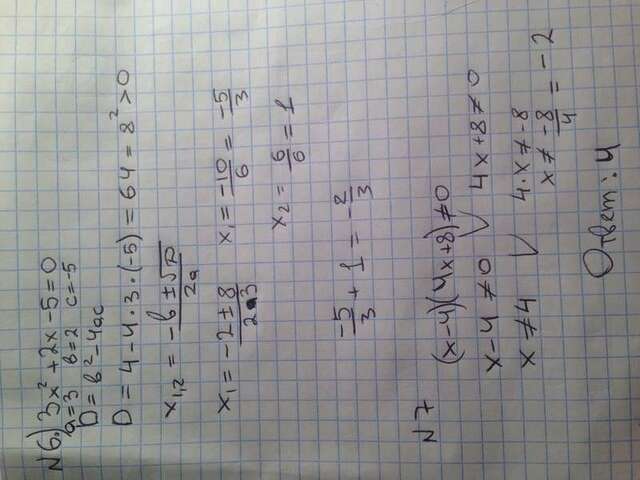 №6.) 3x² + 2x - 5 = 0
a = 3 в = 2 c = -5
D = в² - 4ac
D = 4 - 4 · 3 · (-5) = 64 = 8² > 0
x₁,₂ = -в ± √D / 2a
x₁ = -2 ± 8 / 2·3 x₁ = -10/6 = -5/3
x₂ = 6/6 = 1
-5/3 + 1 = -2/3
№7
(x-4)(4x+8) ≠ 0
x - 4 ≠ 0 ∨ 4x + 8 ≠ 0
x ≠ 4 ∨ 4·x ≠ -8
x ≠ -8/4 = -2
Ответ: 4